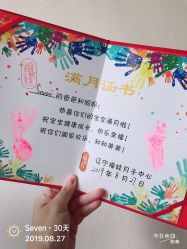 满月证书
Seven 的爸爸和妈妈：
恭喜你们的宝宝满月啦！
祝宝宝健康成长，快乐幸福！
祝你们阖家欢乐，和和美美！
月子中心
2019年8月27日
Seven • 30天
2019.08.27